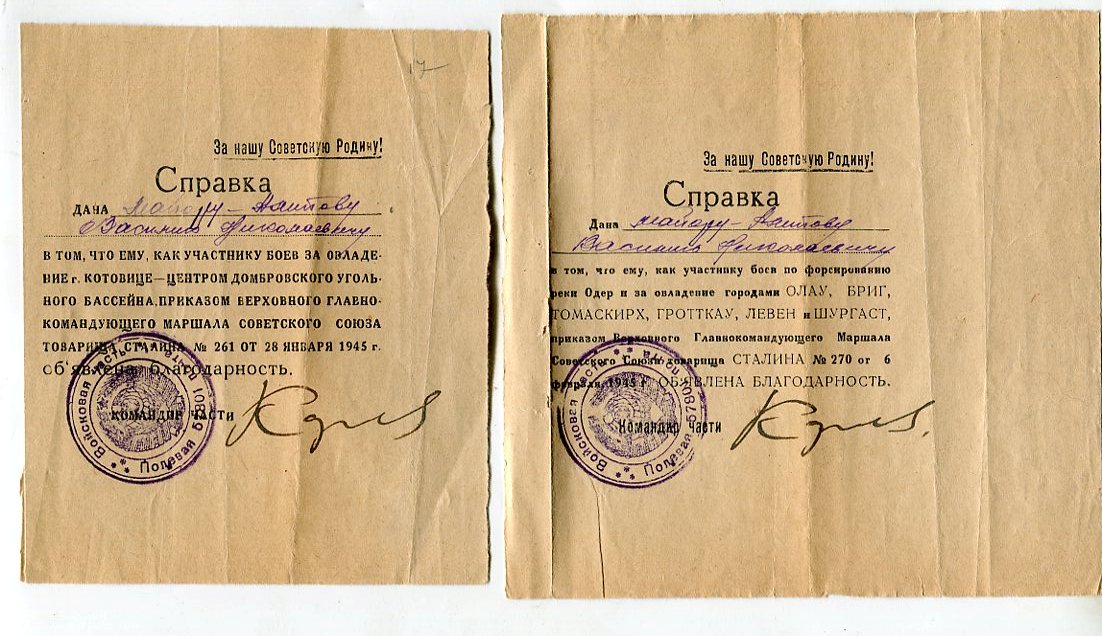 17
За нашу Советскую Родину!
Справка
ДАНА майору
Василию Николаевичу
В ТОМ, ЧТО ЕМУ, КАК УЧАСТНИКУ БОЕВ ЗА ОВЛАДЕ-
НИЕ г. КОТОВИЦЕ—ЦЕНТРОМ ДОМБРОВСКОГО УГОЛЬ-
НОГО БАССЕЙНА, ПРИКАЗОМ ВЕРХОВНОГО ГЛАВНО-
КОМАНДУЮЩЕГО МАРШАЛА СОВЕТСКОГО СОЮЗА
ТОВАРИЩА СТАЛИНА № 261 ОТ 28 ЯНВАРЯ 1945 г.
об'явлена благодарность.
КОМАНДИР части
Войсковая часть Полевая почта
За нашу Советскую Родину!
Справка
Дана майору
Василию Николаевичу
в том, что ему, как участнику боев по форсированию
реки Одер и за овладение городами ОЛАУ, БРИГ,
ТОМАСКИРХ, ГРОТТКАУ, ЛЕВЕН и ШУРГАСТ,
приказом Верховного Главнокомандующего Маршала
Советского Союза товарища СТАЛИНА № 270 от 6
февраля 1945 г. ОБ'ЯВЛЕНА БЛАГОДАРНОСТЬ.
Командир части
Войсковая часть Полевая почта